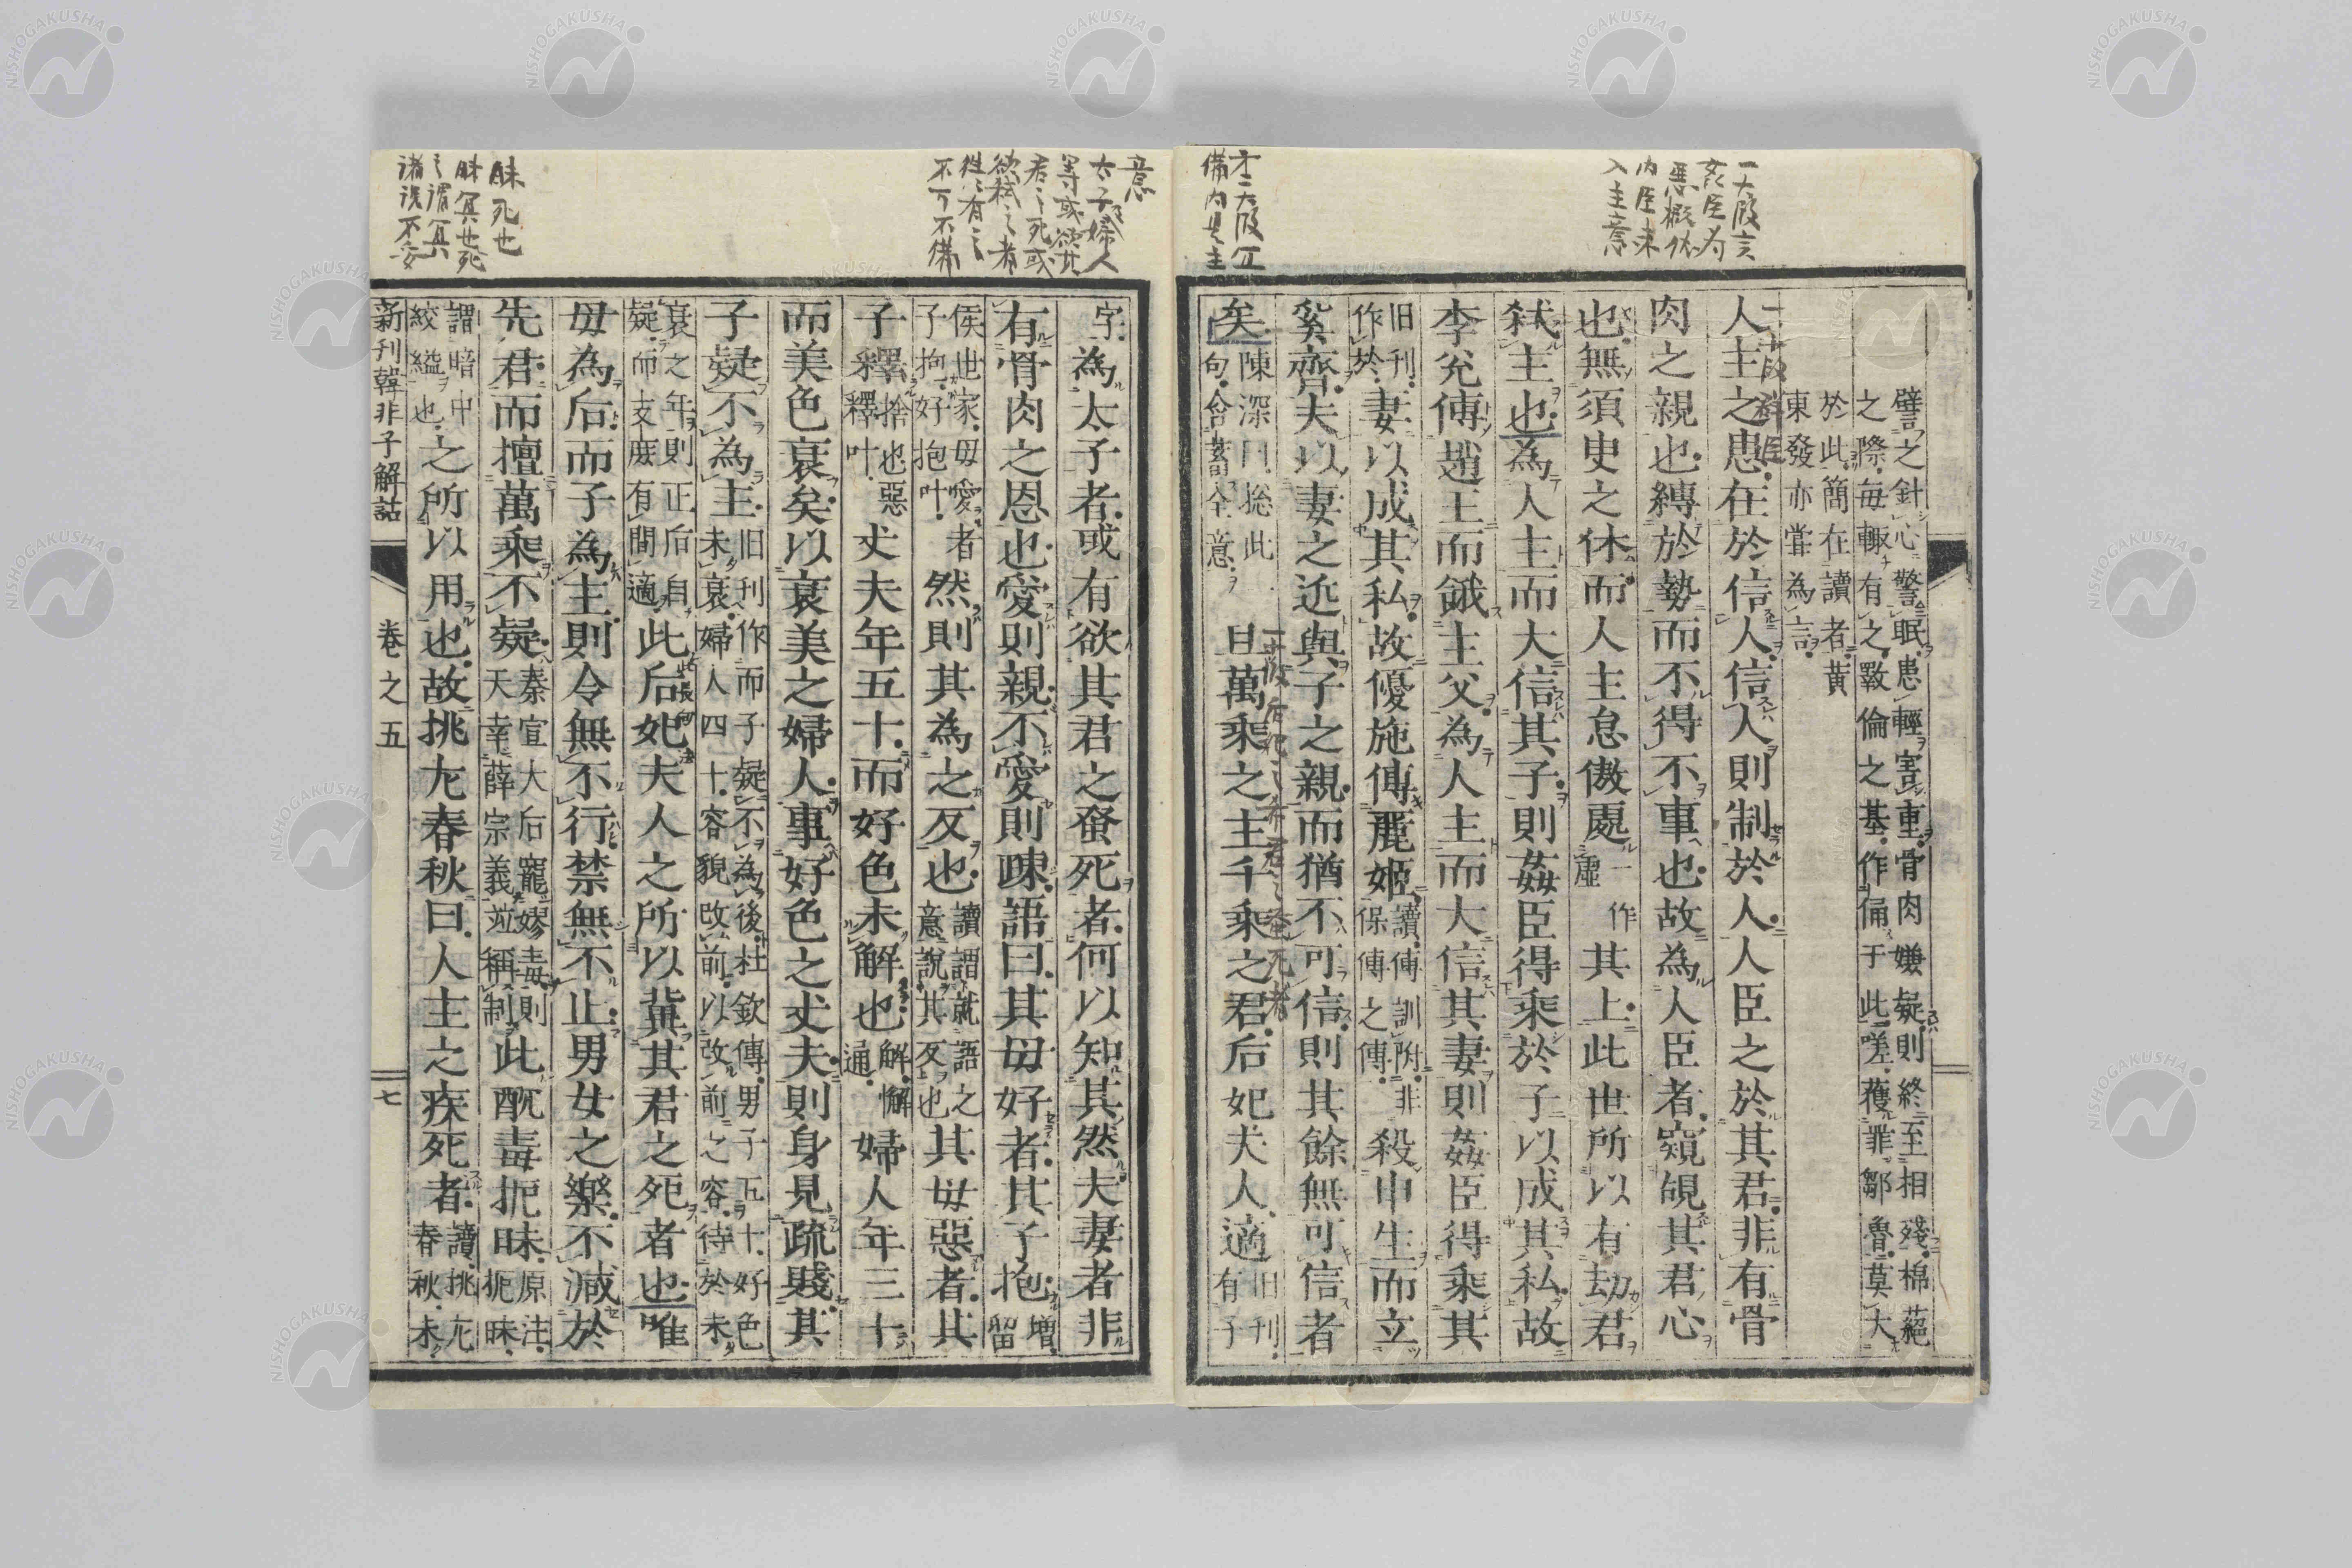 譬之針心警眠患輕害重骨肉嫌疑則終至相殘棉蕝
之際每輙有之斁倫之基作俑于此嗟蓷罪鄒魯莫大
於此簡在讀者黃
東發亦甞為言
人主之患在於信人信人則制於人人臣之於其君非有骨
肉之親也縛於勢而不得不事也故為人臣者窺覘其君心
也無須臾之休而人主怠傲處一作虛其上此世所以有劫君
弒主也為人主而大信其子則姦臣得乘於子以成其私故
李兌傅趙王而餓主父為人主而大信其妻則姦臣得乘其
旧刊作於妻以成其私故優施傅麗姬讀傅訓附非保傅之傅殺申生而立
奚齊夫以妻之近與子之親而猶不可信則其餘無可信者
矣陳深曰捴此句含蓄全意且萬乘之主千乘之君后妃夫人適旧刊有子
字為太子者或有欲其君之蚤死者何以知其然夫妻者非
有骨肉之恩也愛則親不愛則疎語曰其母好者其子抱增留
侯世家母愛者子抱好抱叶然則其為之反也讀謂就語之意說其反也其母惡者其
子釋釋捨也惡叶丈夫年五十而好色未解也解懈通婦人年三十
而美色衰矣以衰美之婦人事好色之丈夫則身見疏賤其
子疑不為主旧刊作而子疑不為後杜欽傳男子五十好色未衰婦人四十容貌改前以改前之容待於未
衰之年則正后自疑而支庶有間適此后妃夫人之所以冀其君之死者也唯
母為后而子為主則令無不行禁無不止男女之樂不減於
先君而擅萬乘不疑秦宣大后寵嫪毒則天幸薛宗義竝稱制此酖毒扼昧原注扼昧
謂暗中絞縊也之所以用也故挑左春秋曰人主之疾死者讀挑左春秋未
新刊韓非子解詁 卷之五 七
一大段言
姦臣為
内臣未
入主意
意
太子婦人
等或欲其
君之死或
欲弒之者
往々有之
不可不備
眛死也
眛冥也死
之謂冥
諸說不妥
NISHOGAKUSHA